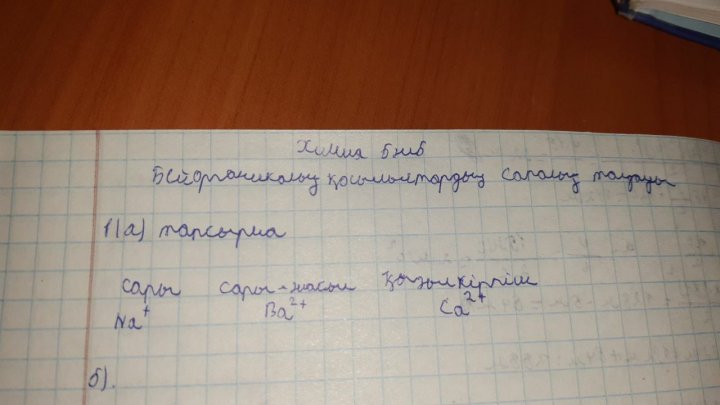 Химия БЖБ
Бейорганикалық қосылыстардың сапалық талдауы
1(а) тапсырма
сары сары-жасыл қызыл кірпіш
Na⁺ Ba²⁺ Ca²⁺
б).